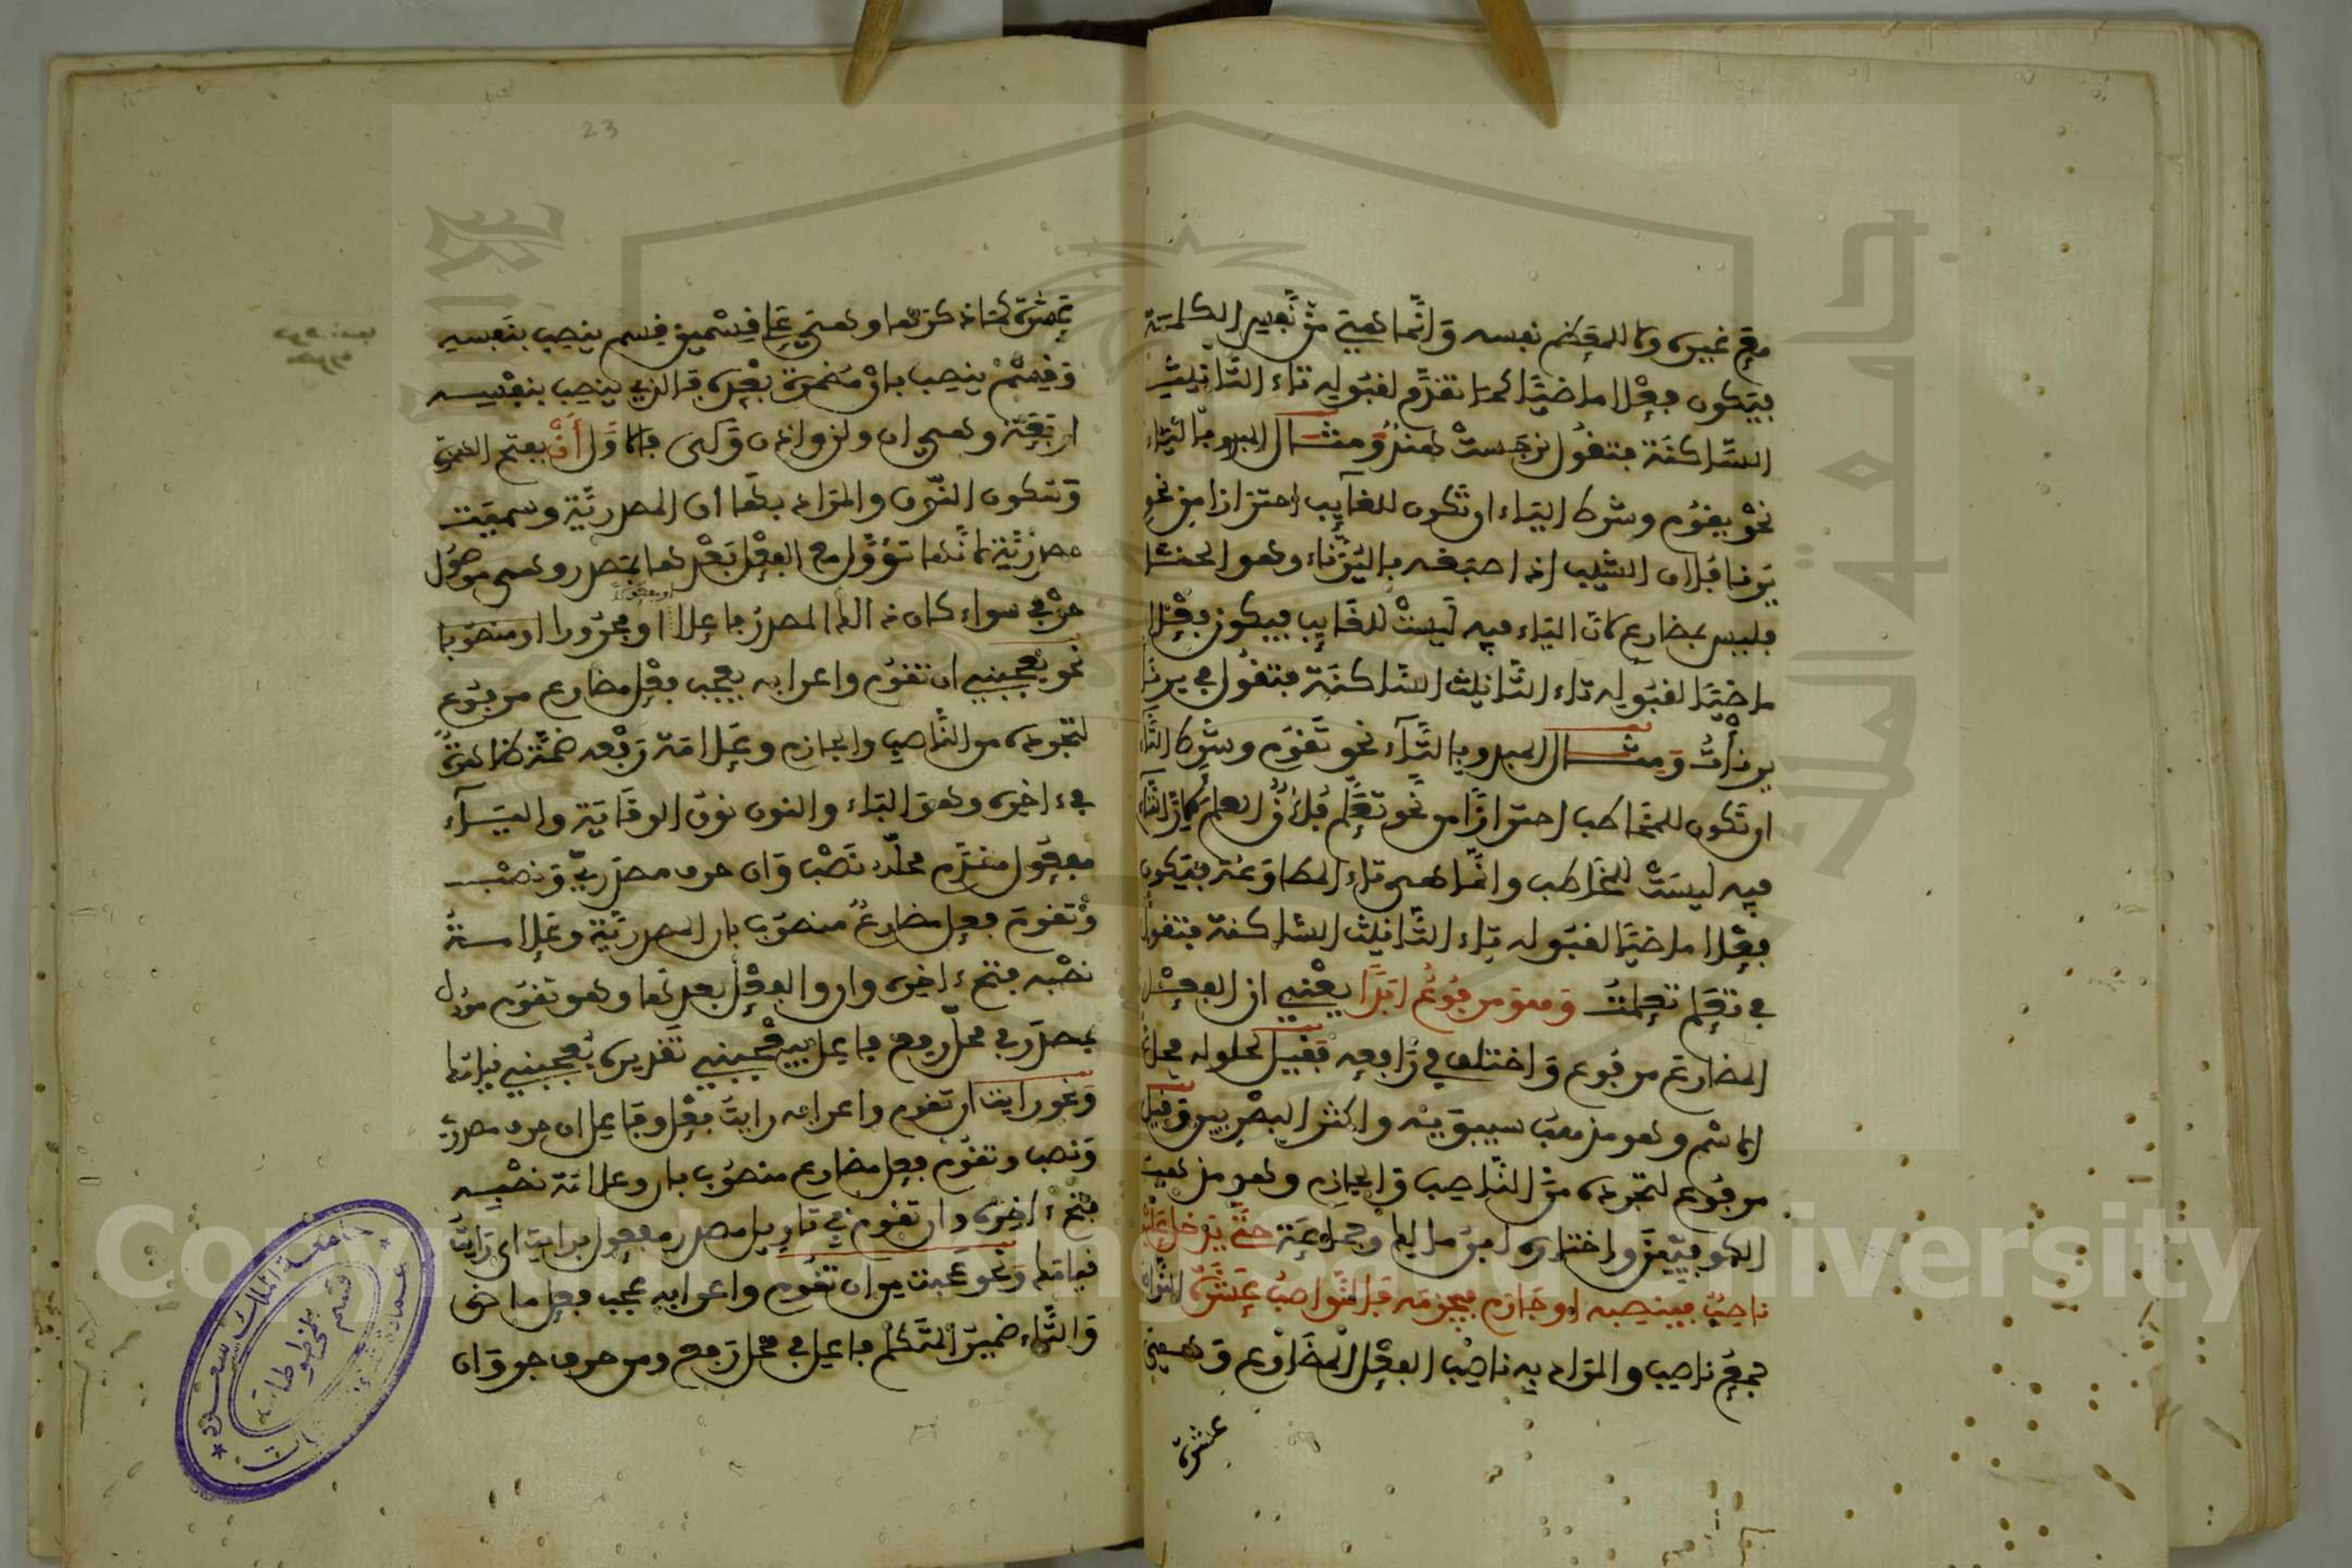 مع غيره او للمعظم نفسه وانما هي من نفس الكلمة
فيكون فعلا ماضيا كما تقدم لقبوله تاء التانيث
الساكنة فتقول نرجست هند ومثال المبدو بالياء
نحو يقوم وشرط الياء ان تكون للغايب احترازا من نحو
يرنا فلان الشيب اذا صبغه باليرناء وهو الحنا
فليس بمضارع لان الياء فيه ليست للغايب فيكون فعلا
ماضيا لقبوله تاء التانيث الساكنة فتقول في يرنا
يرنات ومثال المبدو بالتاء نحو تقوم وشرط التاء
ان تكون للمخاطب احترازا من نحو تعلم فلان العلم لان التاء
فيه ليست للمخاطب وانما هي تاء المطاوعة فيكون
فعلا ماضيا لقبوله تاء التانيث الساكنة فتقول
في تعلم تعلمت وهو مرفوع ابدا يعني ان الفعل
المضارع مرفوع واختلف في رافعه فقيل لحلوله محل
الاسم وهو مذهب سيبويه واكثر البصريين وقيل
مرفوع لتجرده من الناصب والجازم وهو مذهب
الكوفيين واختاره ابن مالك وجماعة حتى يدخل عليه
ناصب فينصبه او جازم فيجزمه فالنواصب عشرة النواصب
جمع ناصب والمراد به ناصب الفعل المضارع وهي
عشرة
عشرة كما ذكرها وهي على قسمين قسم ينصب بنفسه
وقسم ينصب بان مضمرة بعده فالذي ينصب بنفسه
اربعة وهي ان ولن واذن وكي فالاول أن بفتح الهمزة
وسكون النون والمراد بها أن المصدرية وسميت
مصدرية لانها تؤول مع الفعل بعدها بمصدر وهي موصول
حرفي سواء كان ذالك المصدر فاعلا او مجرورا او منصوبا
نحو يعجبني ان تقوم واعرابه يعجب فعل مضارع مرفوع
لتجرده من الناصب والجازم وعلامة رفعه ضمة ظاهرة
في ءاخره وهو الباء والنون نون الوقاية والياء
مفعول مقدم محله نصب وان حرف مصدري ونصب
وتقوم فعل مضارع منصوب بان المصدرية وعلامة
نصبه فتح ءاخره وان والفعل بعدها وهو تقوم مؤول
بمصدر في محل رفع فاعل بيعجبني تقديره يعجبني قيامك
ونحو رايت ان تقوم واعرابه رايت فعل وفاعل ان حرف مصدري
ونصب وتقوم فعل مضارع منصوب بان وعلامة نصبه
فتح ءاخره وان تقوم في تاويل مصدر مفعول برايت اي رايت
قيامك ونحو عجبت من ان تقوم واعرابه عجب فعل ماض
والتاء ضمير المتكلم فاعل في محل رفع ومن حرف جر وان
23
جامعة الملك سعود
قسم المخطوطات
Copyright © King Saud University